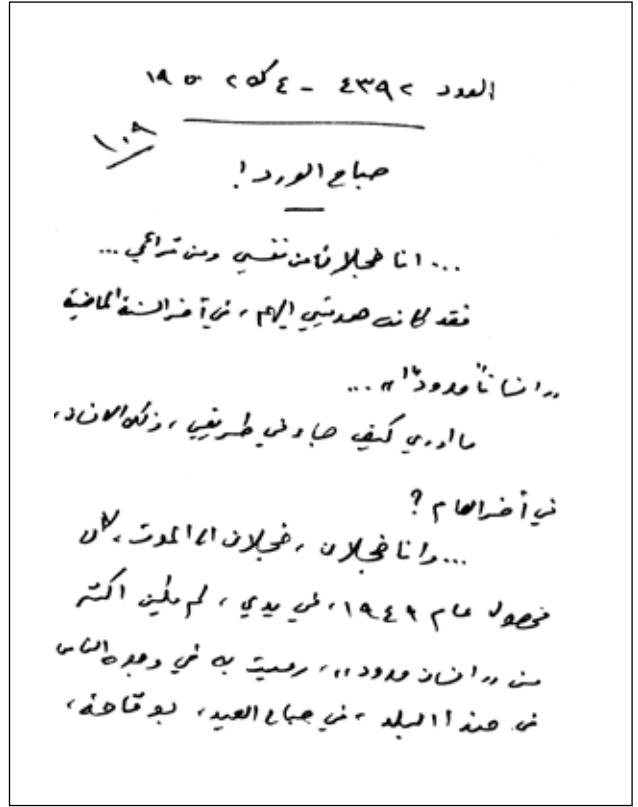 العدد ٤٣٩٢ - ٤ ك٢ ١٩٥٠
١٠٩
صباح الورد!
... انا خجلان من نفسي ومن قرائي ...
فقد كانت هديتي اليهم، في آخر السنة الماضية
"انساناً مدوداً" ...
ما ادري كيف جاء في طريقي، ذلك الانسان،
في آخر العام؟
... وانا خجلان، خجلان الى الموت، لأن
محصول عام ١٩٤٩، في يدي، لم يكن اكثر
من "انسان مدود"، رميت به في وجه الناس
في هذا البلد، في صباح العيد، بوقاحة،